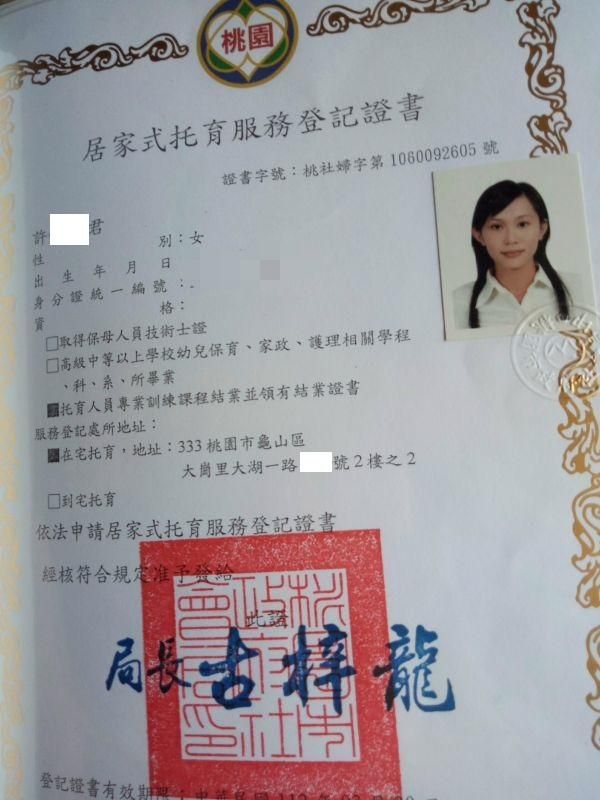 桃園
居家式托育服務登記證書
證書字號：桃社婦字第1060092605號
許 君
性別：女
出生年月日
身分證統一編號：
資格：
□取得保母人員技術士證
□高級中等以上學校幼兒保育、家政、護理相關學程
、科、系、所畢業
■托育人員專業訓練課程結業並領有結業證書
服務登記處所地址：
■在宅托育，地址：333桃園市龜山區
大崗里大湖一路 號2樓之2
□到宅托育
依法申請居家式托育服務登記證書
經核符合規定准予發給
此證
局長古梓龍
登記證書有效期限：中華民國112年